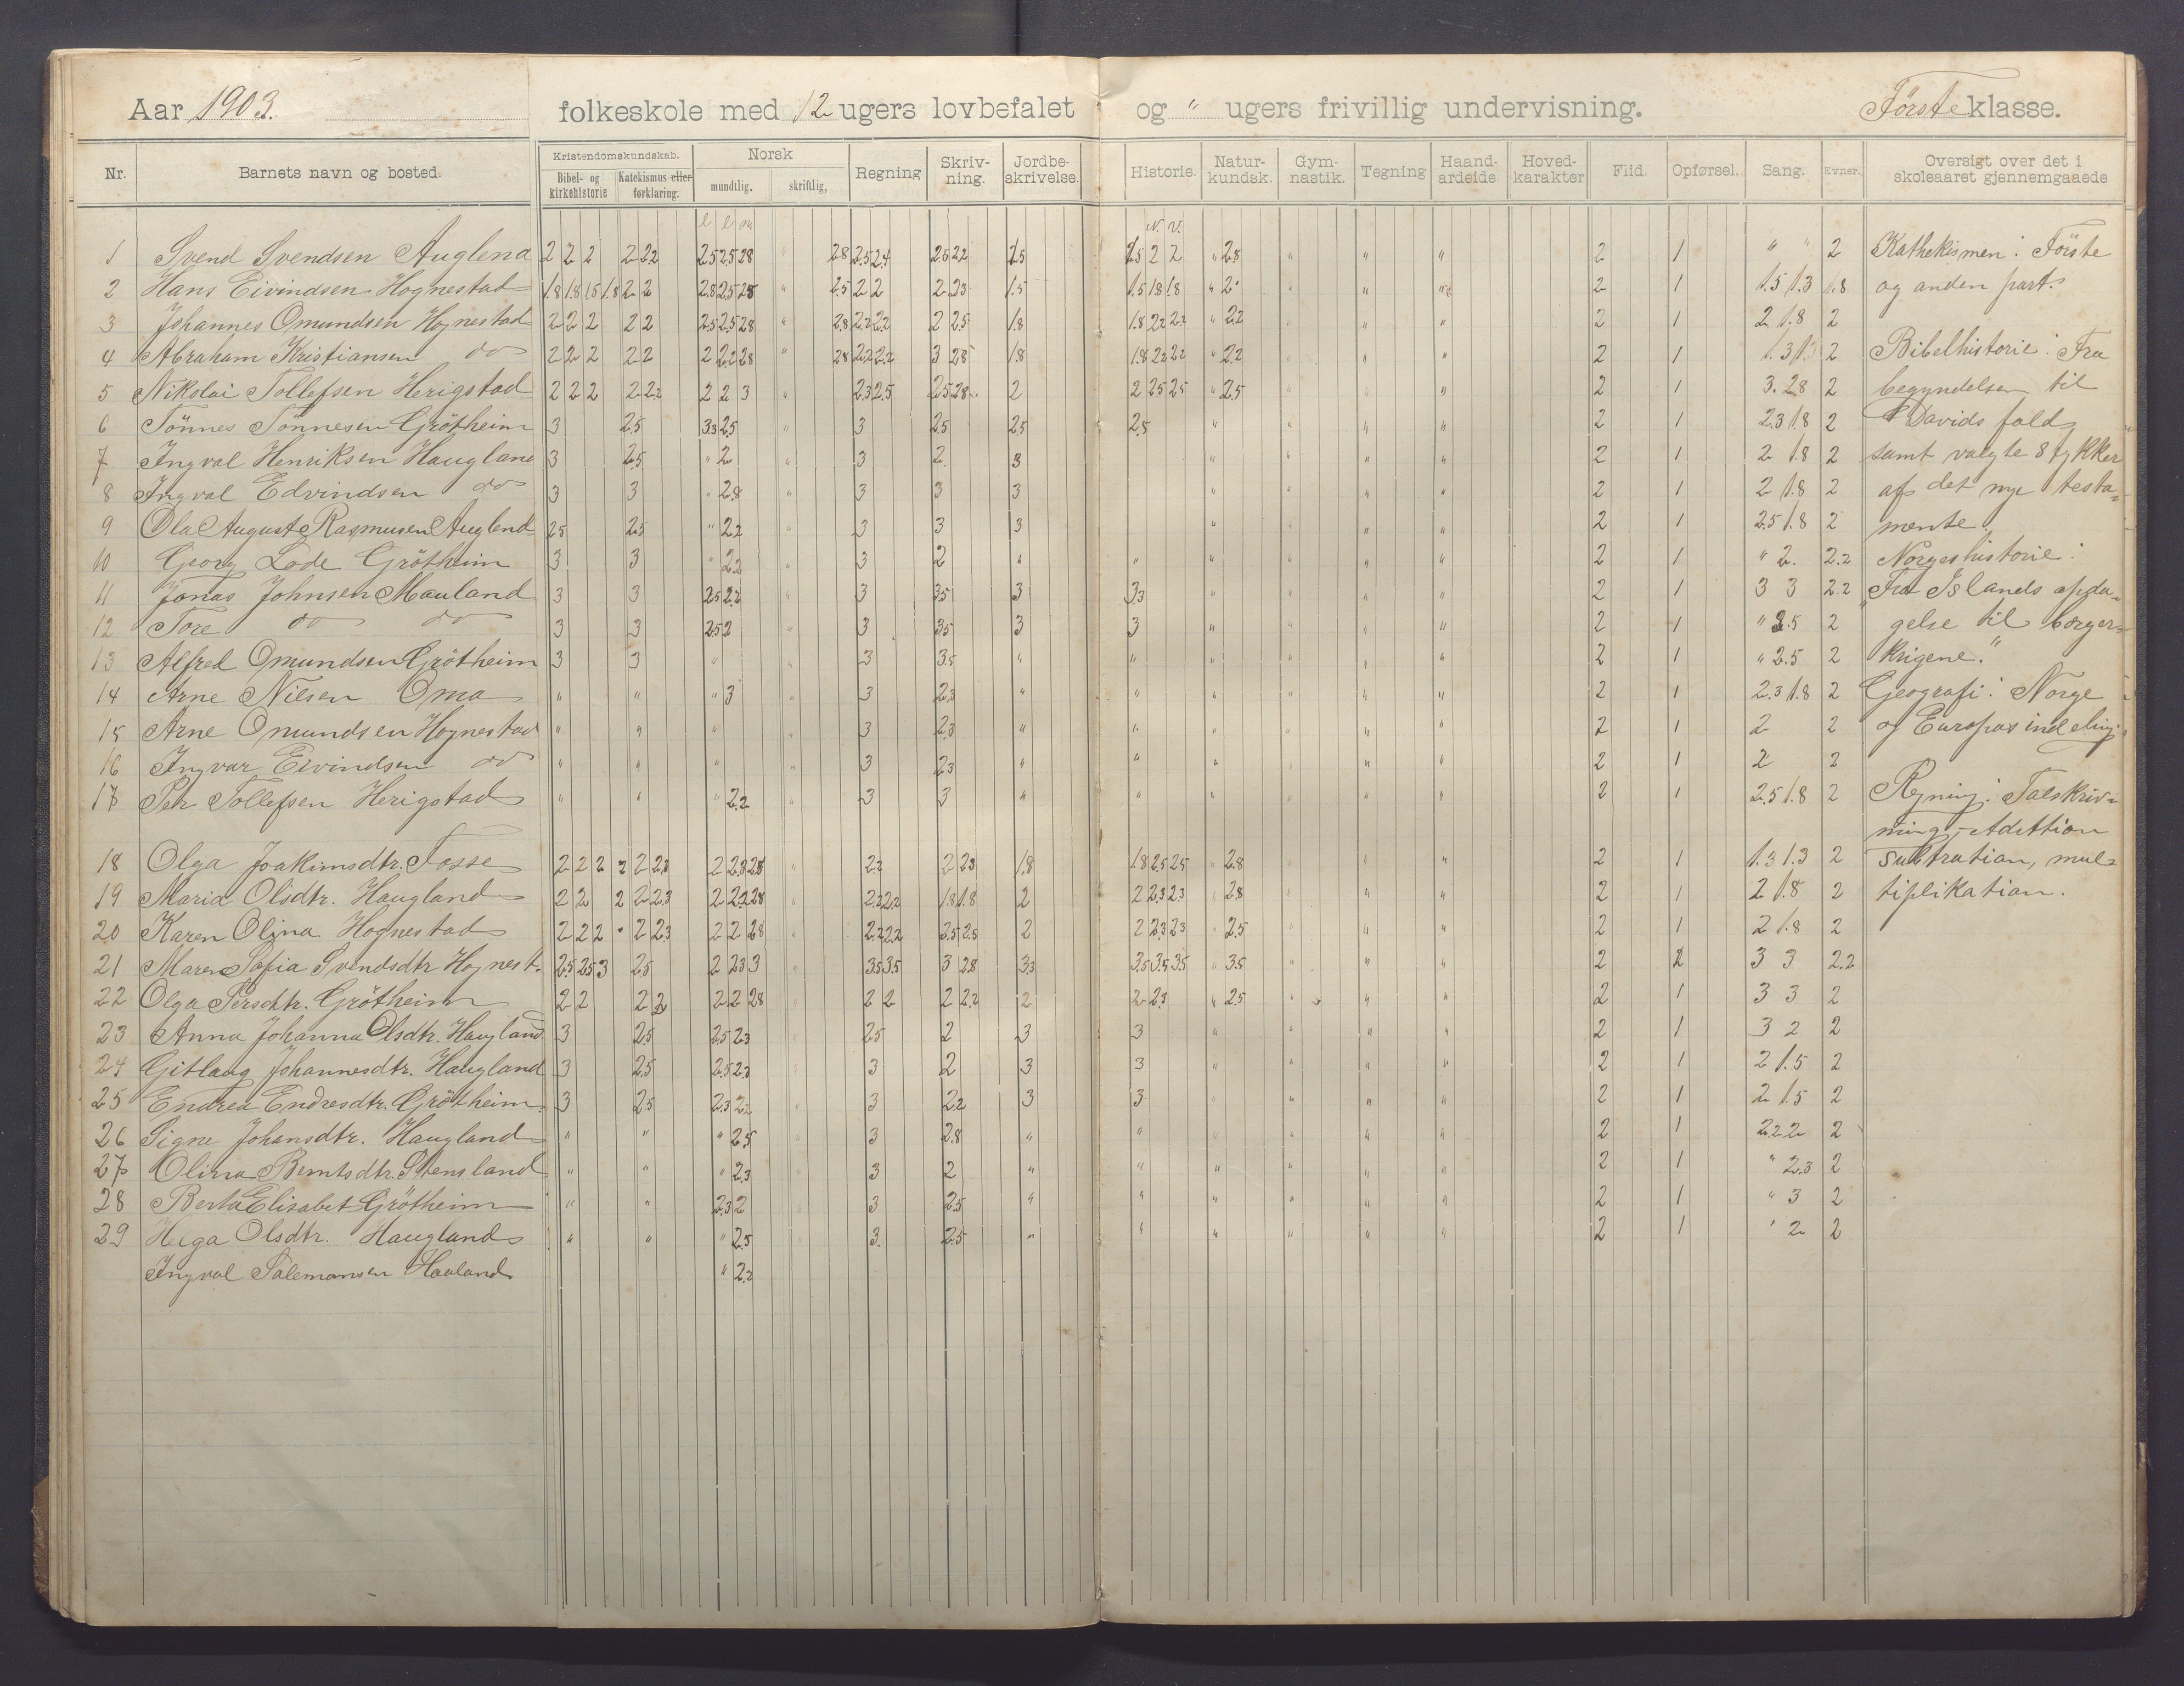 Aar 1903. folkeskole med 12 ugers lovbefalet og " ugers frivillig undervisning. Første klasse.
Nr. Barnets navn og bosted. Kristendomskundskab. Bibel- og kirkehistorie Katekismus eller forklaring. Norsk mundtlig. skriftlig, Regning Skrivning. Jordbeskrivelse. Historie. Naturkundsk. Gymnastik. Tegning Haandarbeide Hovedkarakter Flid. Opførsel. Sang. Evner. Oversigt over det i skoleaaret gjennemgaaede
l l m N. V.
1 Svend Svendsen Auglend 2 2 2 2 2.2 2.5 2.5 2.8 " 2.8 2.5 2.4 2.5 2.2 1.5 1.5 2 2 " 2.8 " " " 2 1 " " 2 Kathekismen: Første
2 Hans Eivindsen Hognestad 1.8 1.8 1.5 1.8 2 2 2.8 2.5 2.8 " 2.5 2 2 2 2.3 1.5 1.5 1.8 1.8 " 2 " " " 2 1 1.5 1.3 1.8 og anden part.
3 Johannes Omundsen Hognestad 2 2 2 2 2 2.5 2.5 2.8 " 2.8 2.2 2.2 2 2.5 1.8 1.8 2.2 2.2 " 2.2 " " " 2 1 2 1.8 2
4 Abraham Kristiansen do 2 2 2 2 2 2 2.2 2.8 " 2.8 2.2 2.2 3 2.8 1.8 1.8 2.2 2.2 " 2.2 " " " 2 1 1.3 2 Bibelhistorie: Fra
5 Nikolai Tollefsen Herigstad 2 2 2 2 2.2 2 2 3 " 2.3 2.5 2.5 2.8 2 2 2.5 2.5 " 2.5 " " " 2 1 3. 2.8 2 begyndelsen til
6 Tønnes Tønnesen Grötheim 3 2.5 3.3 2.5 " 3 2.5 2.5 2.5 " " " " 2 1 2.3 1.8 2 Davids fald
7 Ingval Henriksen Haugland 3 2.5 " 2 " 3 2 3 " " " " 2 1 2 1.8 2 samt valgte stykker
8 Ingval Edvindsen do 3 3 " 2.8 " 3 3 3 " " " " 2 1 2 1.8 2 af det nye testa-
9 Ola August Rasmusen Auglend 2.5 2.5 " 2.2 " 3 3 3 " " " " 2 1 2.5 1.8 2 mente.
10 Georg Lode Grötheim 3 3 " 2.2 " 3 2 " " " " " " 2 1 " 2. 2.2 Norgeshistorie:
11 Jonas Johnsen Mauland 3 3 2.5 2.2 " 3 3.5 3 3.3 " " " " 2 1 3 3 2.2 Fra Islands opda-
12 Tore do do 3 3 2.5 2 " 3 3.5 3 3 " " " " 2 1 " 2.5 2 gelse til borger-
13 Alfred Omundsen Grötheim 3 3 " " 3 3.5 " " " " " " 2 1 " 2.5 2 krigene."
14 Arne Nilsen Oma " " " 3 " 3 2.3 " " " " " " 2 1 2.3 1.8 2 Geografi: Norge
15 Arne Omundsen Hognestad " " " " 3 2.3 " " " " " " 2 1 2 2 og Europas indeling.
16 Ingvar Eivindsen do " " " " 3 2.3 " " " " " " 2 1 2 2
17 Petr Tollefsen Herigstad " " " 2.2 " 3 3 " " " " " " 2 1 2.5 1.8 2 Regning: Talskriv-
ning, Adittion
18 Olga Joakimsdtr. Fosse 2 2 2 2 2 2.3 2 2.3 2.8 " 2.2 2 2.3 1.8 1.8 2.5 2.5 " 2.8 " " " 2 1 1.3 1.3 2 subtration, mul-
19 Maria Olsdtr. Haugland 2 2 2 2 2.3 2 2.2 2.8 " 2.2 2.2 1.8 1.8 2 2 2.3 2.3 " 2.8 " " " 2 1 2 1.8 2 tiplikation.
20 Karen Olina Hognestad 2 2 2 " 2 2.3 2 2 2.8 " 2.2 2.2 2.5 2.5 2 2 2.3 2.3 " 2.5 " " " 2 1 2 1.8 2
21 Maren Sofia Svendsdtr Hognest. 2.5 2.5 3 2.5 2 2.3 3 " 3.5 3.5 3 2.8 3.3 3.5 3.5 3.5 " 3.5 " " " 2 2 3 3 2.2
22 Olga Persdtr. Grötheim 2 2 2 2 2 2 2.8 " 2 2 2 2.2 2 2 2.3 " 2.5 " " " 2 1 3 3 2
23 Anna Johanna Olsdtr. Haugland 3 2.5 2.5 2.3 2.5 2 3 3 " " " " 2 1 3 2 2
24 Gitlaug Johannesdtr. Haugland 3 2.5 2.5 2.3 " 3 2 3 3 " " " " 2 1 2 1.5 2
25 Endrea Endresdtr. Grötheim. 3 2.5 2.3 2.2 " 3 2.2 3 3 " " " " 2 1 2 1.5 2
26 Signe Johansdtr. Haugland " " " 2.5 " 3 2.8 " " " " " " 2 1 2.2 2 2
27 Olina Berntsdtr. Stensland " " " 2.3 3 2 " " " " " " 2 1 " 2.3 2
28 Berta Elisabet Grötheim " " 2.3 2 3 2.5 " " " " " " 2 1 " 3 2
29 Helga Olsdtr. Haugland " " " 2.5 3. 2.5 " " " " " " 2 1 " 2 2
Ingval Salemonsen Haaland " 2.2